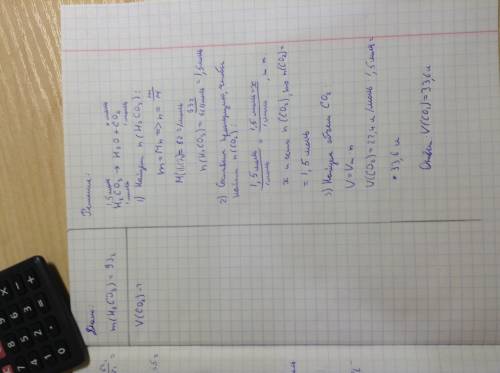 Дано:
m(H₂CO₃) = 93 г
V(CO₂) - ?
Решение:
1,5 моль x моль
H₂CO₃ → H₂O + CO₂
1 моль 1 моль
1) Найдём n(H₂CO₃):
m = Mn => n = m/M
M(H₂CO₃) = 62 г/моль
n(H₂CO₃) = = 1,5 моль
2) Составим пропорцию, чтобы
найти n(CO₂):
1,5 моль/1 моль = x/1 моль, т.к
x и есть n(CO₂), то n(CO₂) =
= 1,5 моль
3) Найдём объем CO₂
V = Vm n
V(CO₂) = 22,4 л/моль · 1,5 моль =
= 33,6 л
Ответ: V(CO₂) = 33,6 л
0
1
2
4
5
7
8
.
=
-
+
×